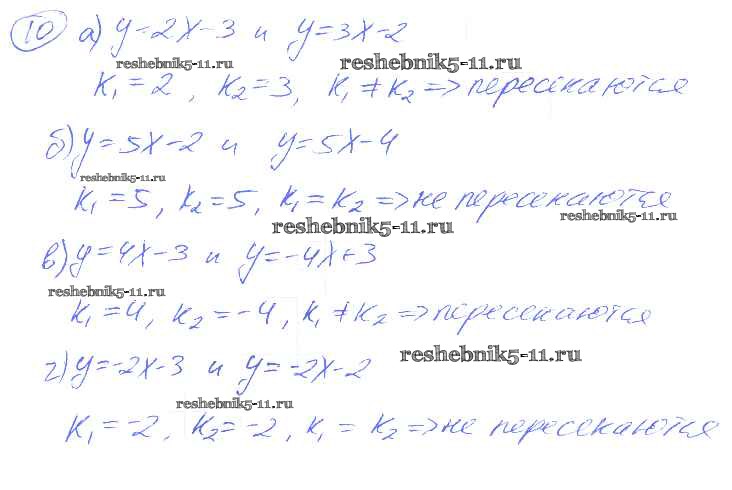 10 а) y=2x-3 и y=3x-2
reshebnik5-11.ru reshebnik5-11.ru
K₁=2, K₂=3, K₁≠K₂=>пересекаются
б) y=5x-2 и y=5x-4
reshebnik5-11.ru
K₁=5, K₂=5, K₁=K₂=>не пересекаются
reshebnik5-11.ru reshebnik5-11.ru
в) y=4x-3 и y=-4x+3
reshebnik5-11.ru
K₁=4, K₂=-4, K₁≠K₂=>пересекаются
reshebnik5-11.ru
г) y=-2x-3 и y=-2x-2
reshebnik5-11.ru
K₁=-2, K₂=-2, K₁=K₂=>не пересекаются